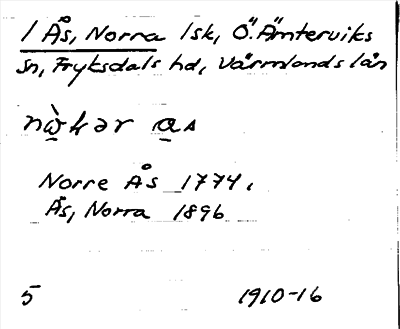 / Ås, Norra 1sk, Ö. Ämterviks
sn, Fryksdals hd, Värmlands län
Norre Ås 1774,
Ås, Norra 1896
5 1910-16